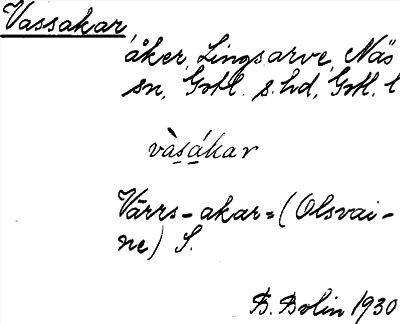 Vassakar,
åker, Lingsarve, Näs
sn, Gotl. s. hd, Gotl. l
vàsákar
Värrs-akar=(Olsvai-
ne) S.
B. Bolin 1930